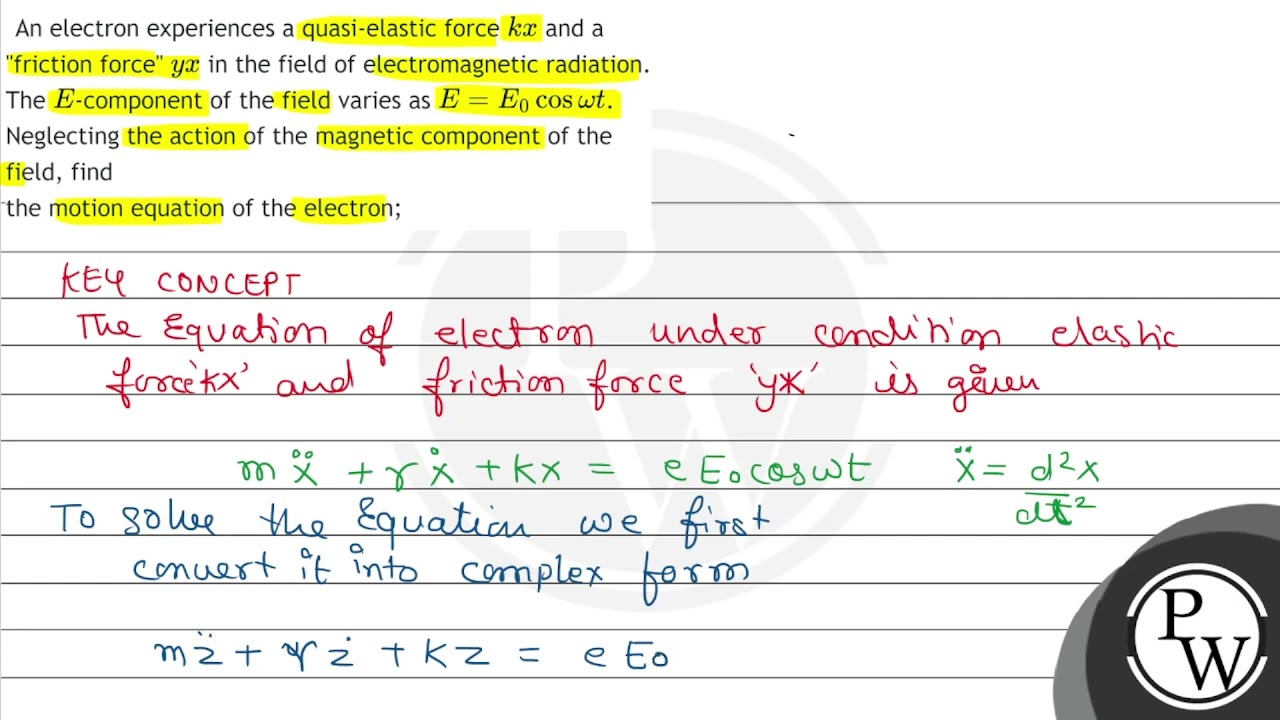 An electron experiences a quasi-elastic force kx and a
"friction force" yx in the field of electromagnetic radiation.
The E-component of the field varies as E = E₀ cos ωt.
Neglecting the action of the magnetic component of the
field, find
the motion equation of the electron;
KEY CONCEPT
The Equation of electron under condition elastic
force 'kx' and friction force 'γẋ' is given
mẍ + γẋ + kx = eE₀cosωt ẍ = d²x/dt²
To solve the Equation we first
convert it into complex form
mz̈ + γż + kz = eE₀
P
W